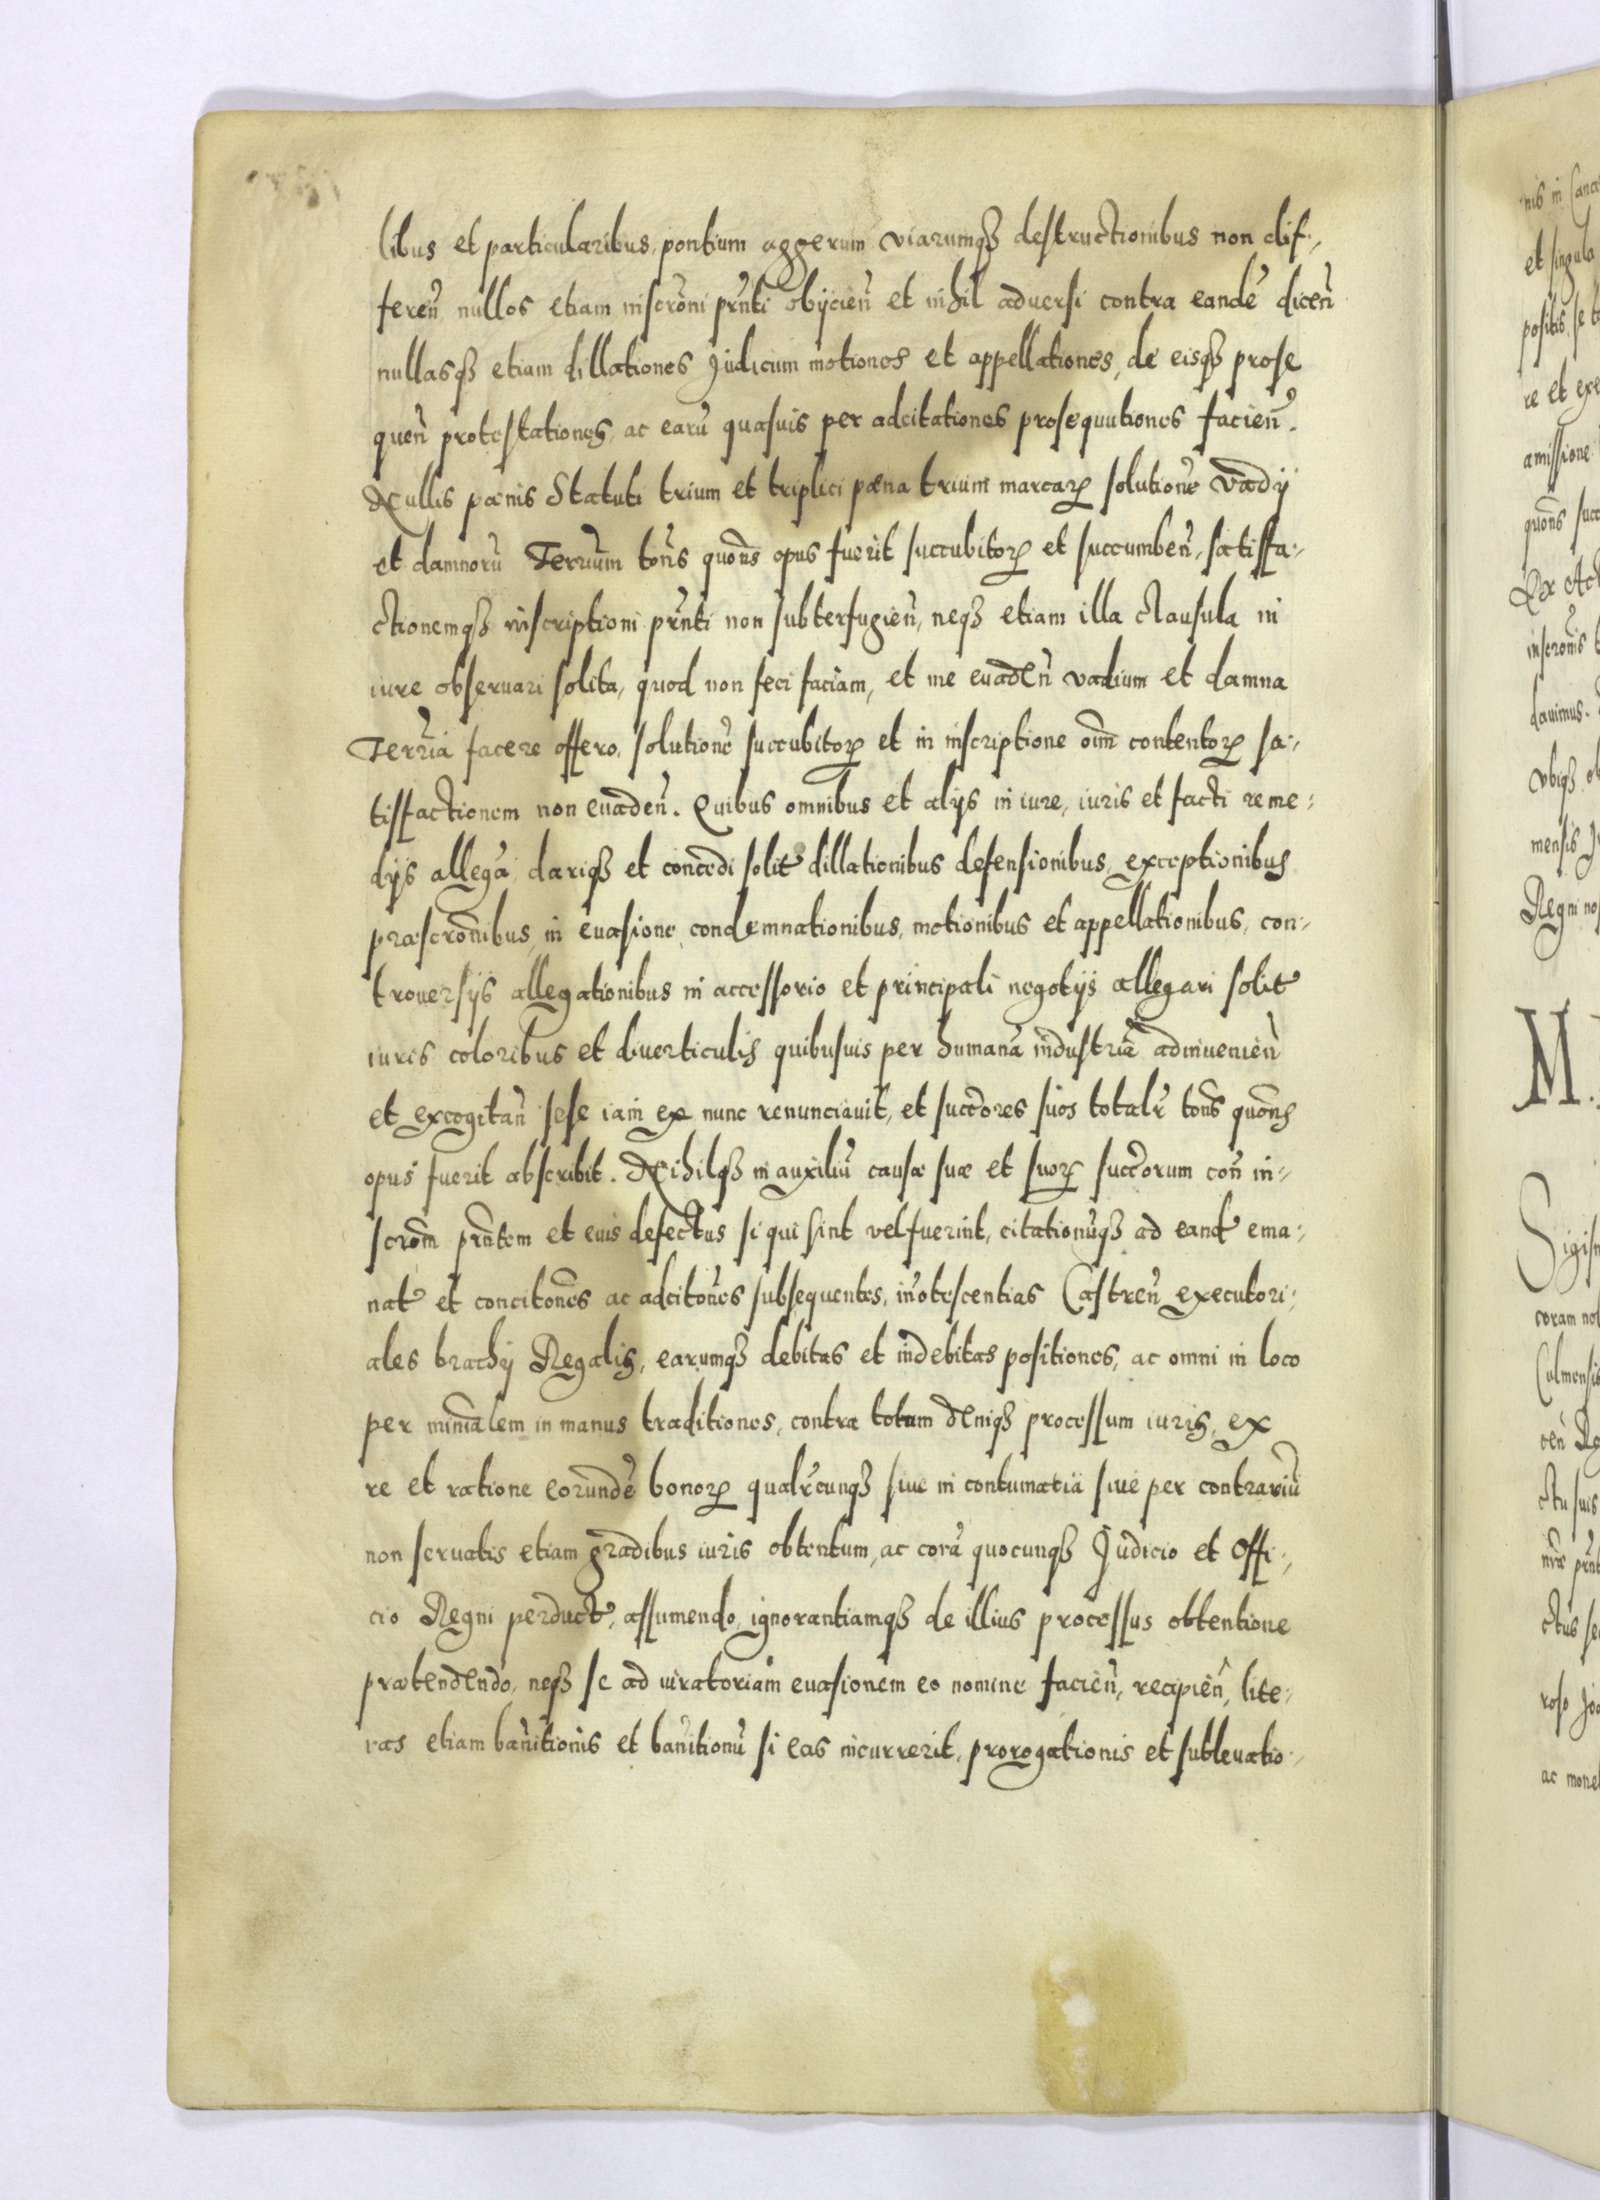 libus et particularibus, pontium aggerum viarumqȝ destructionibus non dif-
feren̄ nullos etiam inscrōni prn̄ti obijcien̄ et nihil adversi contra eandē dicen̄
nullasqȝ etiam dillationes Judicum motiones et appellationes, de eisqȝ prose
quen̄ protestationes, ac earū quasuis per adcitationes prosequutiones facien̄.
Nullis pænis Statuti trium et triplici pæna trium marcarꝝ solutionē vadij
et damnorū Terrūm ton̄s quon̄s opus fuerit succubitorꝝ et succumben̄, satisfa-
ctionemqȝ inscriptioni prn̄ti non subterfugien̄, neqȝ etiam illa clausula in
iure obseruari solita, quod non feci faciam, et me euaden̄ vadium et damna
Terrīa facere offero, solutionē succubitorꝝ et in inscriptione oīm contentorꝝ sa-
tisfactionem non euaden̄. Quibus omnibus et alijs in iure, iuris et facti reme-
dijs allegā, dariqȝ et concedi solit dillationibus defensionibus exceptionibus
præscrōnibus, in euasione condemnationibus, motionibus et appellationibus, con-
trouersijs allegationibus in accessorio et principali negotijs allegari solit
iuris coloribus et diuerticulis quibusuis per humanā industriā adinuenien̄
et excogitan̄ sese iam ex nunc renunciauit, et succōres suos totalr̄ ton̄s quon̄s
opus fuerit abscribit. Nihilqȝ in auxiliū causæ suæ et suorꝝ succōrum con̄ in-
scrōm prn̄tem et eius defectus si qui sint vel fuerint, citationūqȝ ad eand ema-
nat et concitōnes ac adcitōnes subsequentes, in̄otescentias Castren̄ executori-
ales brachij Regalis, earumqȝ debitas et indebitas positiones, ac omni in loco
per minīalem in manus traditiones, contra totum deniqȝ processum iuris, ex
re et ratione eorundē bonorꝝ qualr̄cunqȝ siue in contumatiā siue per contrariū
non seruatis etiam gradibus iuris obtentum, ac corā quocunqȝ Judicio et Offi-
cio Regni perduct, assumendo, ignorantiamqȝ de illius processus obtentione
prætendendo, neqȝ se ad iuratoriam euasionem eo nomine facien̄, recipien̄, lite-
ras etiam ban̄itionis et ban̄itionū si eas incurrerit, prorogationis et subleuatio-
nis in Canc
et singula
positis, se
re et exe
amissione
quon̄s succ
Ex Act
inscrōnis
dauimus.
vbiqȝ
mensis
Regni no
M.
Sigis
coram no
Culmensis
cen̄ Re
ctu suis
nrā prn̄t
ctus se
roso Jo
ac mone